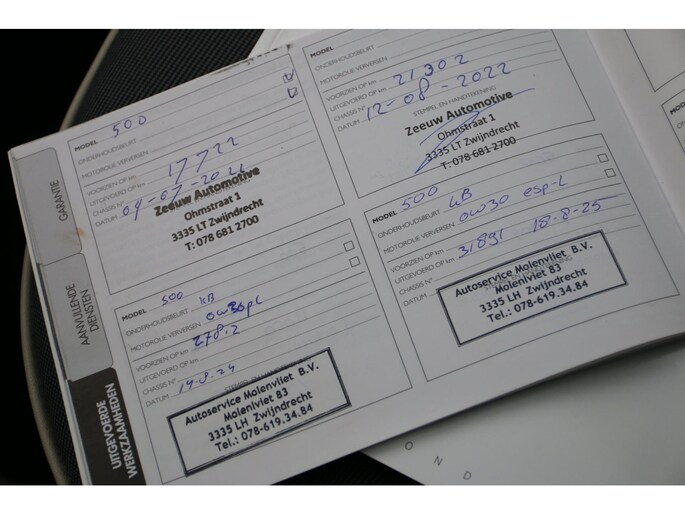 GARANTIE
AANVULLENDE
DIENSTEN
UITGEVOERDE
WERKZAAMHEDEN
MODEL 500
ONDERHOUDSBEURT
MOTOROLIE VERVERSEN
VOORZIEN OP km
UITGEVOERD OP km 17722
CHASSIS N°
DATUM 04-07-2021
Zeeuw Automotive
Ohmstraat 1
3335 LT Zwijndrecht
T: 078 681 2700
MODEL
ONDERHOUDSBEURT
MOTOROLIE VERVERSEN
VOORZIEN OP km
UITGEVOERD OP km 21302
CHASSIS N°
DATUM 12-08-2022
STEMPEL EN HANDTEKENING
Zeeuw Automotive
Ohmstraat 1
3335 LT Zwijndrecht
T: 078 681 2700
MODEL 500
ONDERHOUDSBEURT KB
MOTOROLIE VERVERSEN
VOORZIEN OP km
UITGEVOERD OP km
CHASSIS N°
DATUM 14-8-24
Autoservice Molenvliet B.V.
Molenvliet 83
3335 LH Zwijndrecht
Tel.: 078-619.34.84
MODEL 500
ONDERHOUDSBEURT KB
MOTOROLIE VERVERSEN 0W30 ESP-L
VOORZIEN OP km
UITGEVOERD OP km 31891 18-8-25
CHASSIS N°
DATUM
Autoservice Molenvliet B.V.
Molenvliet 83
3335 LH Zwijndrecht
Tel.: 078-619.34.84